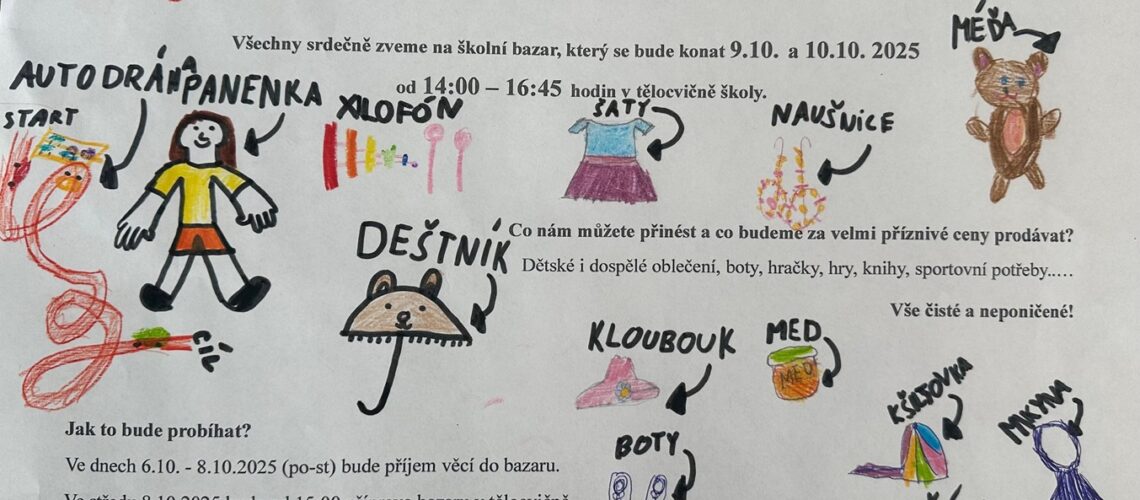 Všechny srdečně zveme na školní bazar, který se bude konat 9.10. a 10.10. 2025
od 14:00 – 16:45 hodin v tělocvičně školy.
MÉĎA
AUTODRÁHA
PANENKA
START
XILOFÓN
ŠATY
NAUŠNICE
DEŠTNÍK
Co nám můžete přinést a co budeme za velmi příznivé ceny prodávat?
Dětské i dospělé oblečení, boty, hračky, hry, knihy, sportovní potřeby.….
Vše čisté a neponičené!
CÍL
KLOUBOUK
MED
MED
KŠILTOVKA
BOTY
Jak to bude probíhat?
Ve dnech 6.10. - 8.10.2025 (po-st) bude příjem věcí do bazaru.